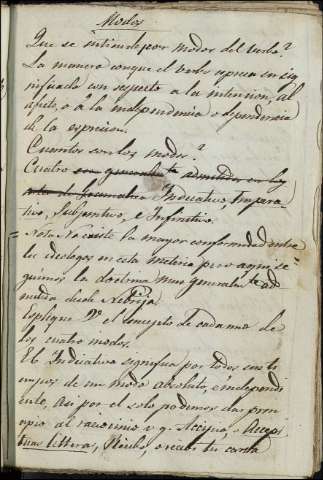 Modos
Que se intiende por modos del verbo?
La manera con que el verbo expresa su sig
nificado con respecto a la intencion, al
afecto, o a la independencia o dependencia
de la expresion.
Cuantos son los modos?
Cuatro son generalmte admitidos en los
de Gramatica Indicativo, Impera-
tivo, Subjuntivo, e Infinitivo
Nota No existe la mayor conformidad entre
los ideologos en esta materia pero aqui se-
guimos la doctrina mas generalmte ad
mitida desde Nebrija
Esplique V. el concepto de cada uno de
los cuatro modos.
El Indicativo significa por todos sus ti
empos de un modo absoluto, e independi
ente. Asi por el solo podemos dar prin
cipio al raciocinio v. g. Accipio, o Accepi
tuas litteras, Recibo, o recibi tu carta